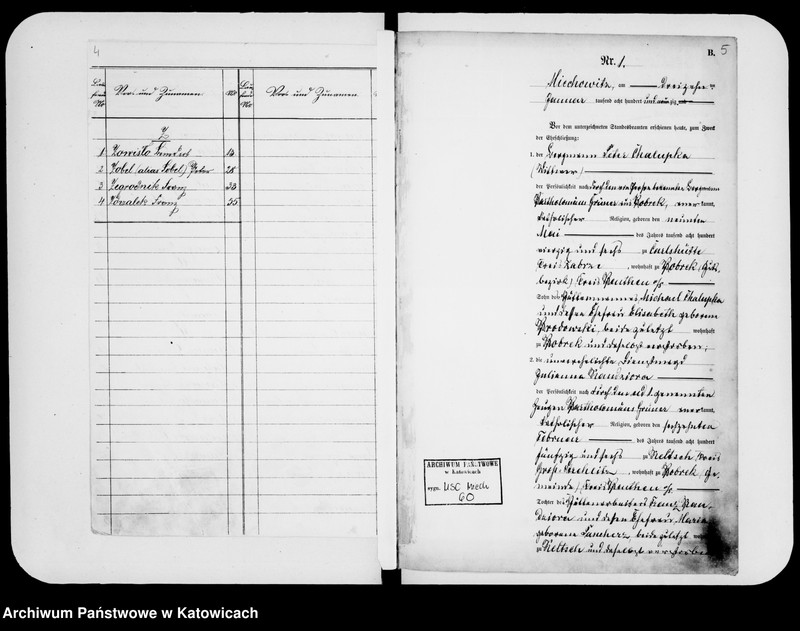 4
Vor- und Zunamen No Vor- und Zunamen
Z
1 Zowislo 13
2 Zobel (alias Sobel) Peter 28
3 Zegrodnik Franz 33
4 Franz 35
B. 5
Nr. 1.
Miechowitz, am Dreizehn ten
Januar tausend acht hundert und
Vor dem unterzeichneten Standesbeamten erschienen heute, zum Zweck
der Eheschließung:
1. der Bergmann Peter Chalupka
(Wittwer)
der Persönlichkeit nach durch den von Person bekannten Bergmann
Bartholomäus Grüner aus Bobrek, aner kannt,
katholischer Religion, geboren den neunten
Mai des Jahres tausend acht hundert
vierzig und sechs zu Carlshütte
Kreis Zabrze, wohnhaft zu Bobrek (Guts-
bezirk) Kreis Beuthen o/s
Sohn des Hüttenmannes Michael Chalupka
und dessen Ehefrau Elisabeth geborene
Brodowski, beide zuletzt wohnhaft
zu Bobrek und daselbst verstorben;
2. die unverehelichte Dienstmagd
Julianna Kandziora
der Persönlichkeit nach durch den ad 1 genannten
Zeugen Bartholomäus Grüner aner kannt,
katholischer Religion, geboren den sechzehnten
Februar des Jahres tausend acht hundert
fünfzig und sechs zu Keltsch, Kreis
Groß Strehlitz, wohnhaft zu Bobrek, Ge-
meinde (Kreis Beuthen o/s)
Tochter des Hüttenarbeiters Franz Kan-
dziora und dessen Ehefrau Maria
geborene beide zuletzt
zu Keltsch und daselbst verstorben
ARCHIWUM PAŃSTWOWE
w Katowicach
sygn. USC Miech
60
Archiwum Państwowe w Katowicach